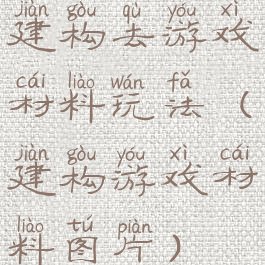 jiàn gòu qù yóu xì
建构去游戏
cái liào wán fǎ
材料玩法（
jiàn gòu yóu xì cái
建构游戏材
liào tú piàn
料图片）